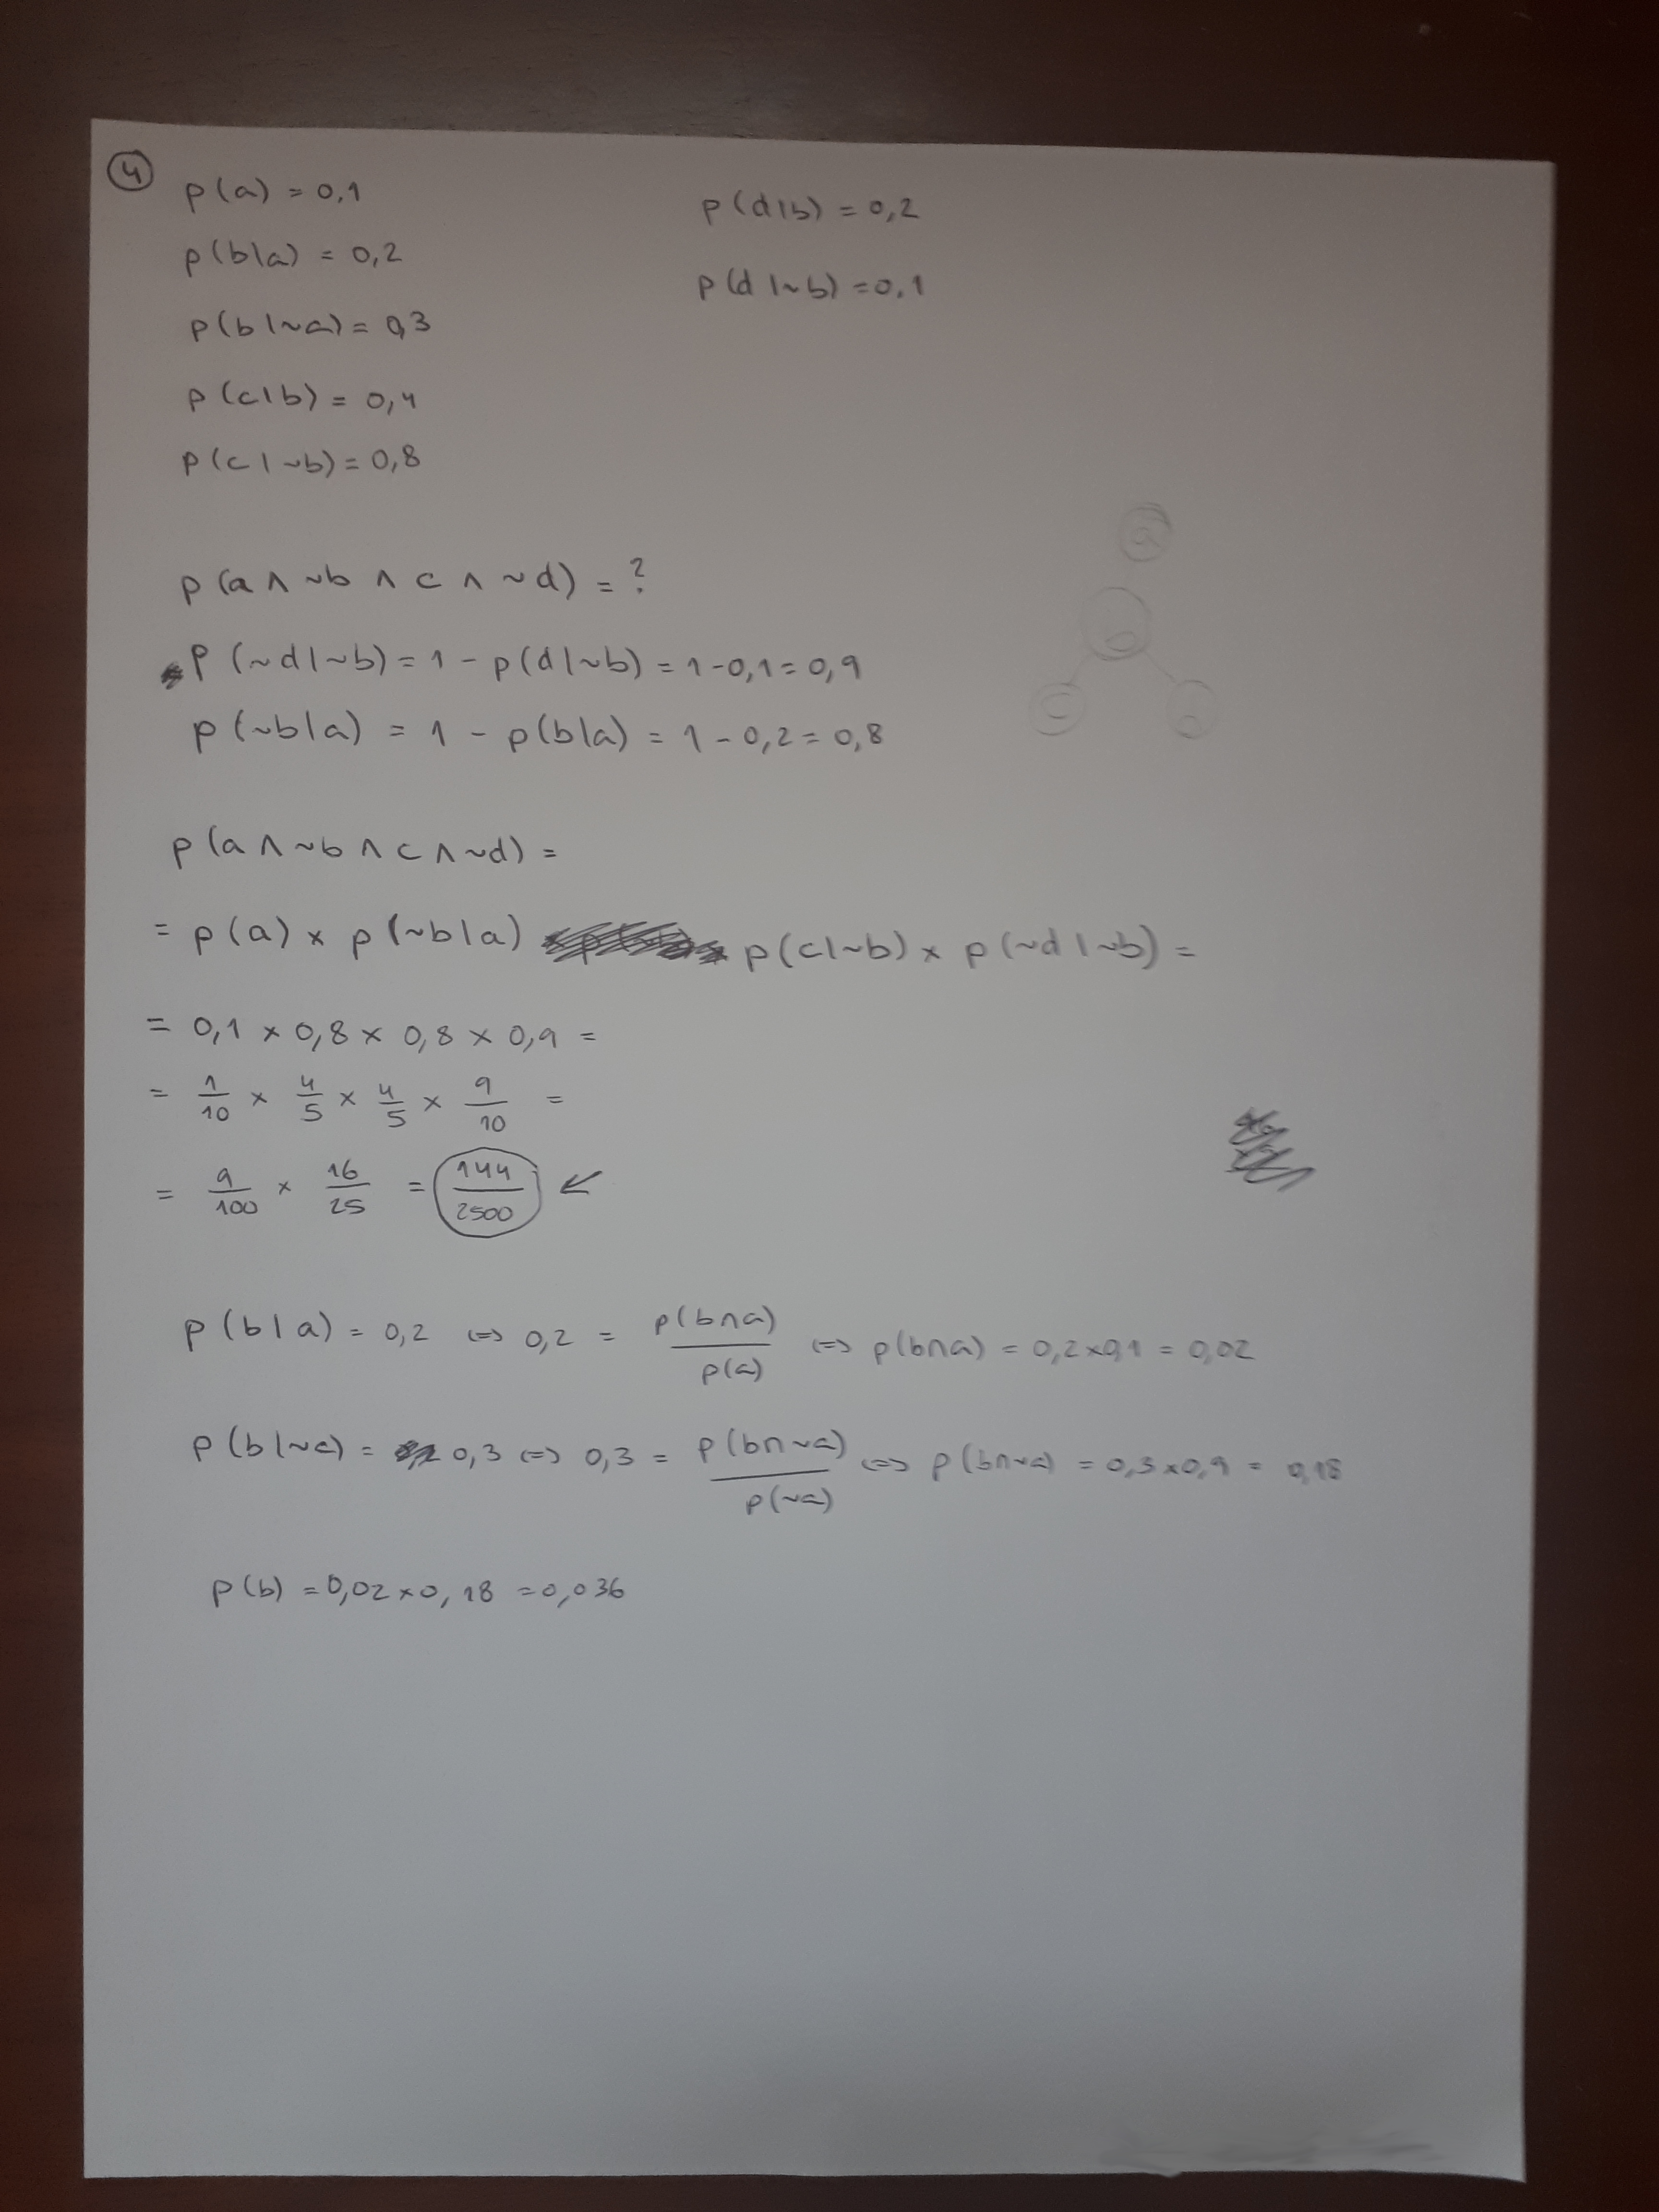 4
p(a) = 0,1
p(b|a) = 0,2
p(b|~a) = 0,3
p(c|b) = 0,4
p(c|~b) = 0,8
p(d|b) = 0,2
p(d|~b) = 0,1
p(a ∧ ~b ∧ c ∧ ~d) = ?
p(~d|~b) = 1 - p(d|~b) = 1-0,1 = 0,9
p(~b|a) = 1 - p(b|a) = 1 - 0,2 = 0,8
a
b
c
d
p(a ∧ ~b ∧ c ∧ ~d) =
= p(a) × p(~b|a) × p(c|~b) × p(~d|~b) =
= 0,1 × 0,8 × 0,8 × 0,9 =
= 1/10 × 4/5 × 4/5 × 9/10 =
= 9/100 × 16/25 = 144/2500 ↙
p(b|a) = 0,2 <=> 0,2 = p(b∩a)/p(a) <=> p(b∩a) = 0,2×0,1 = 0,02
p(b|~a) = 0,3 <=> 0,3 = p(b∩~a)/p(~a) <=> p(b∩~a) = 0,3×0,9 = 0,18
p(b) = 0,02×0,18 = 0,036